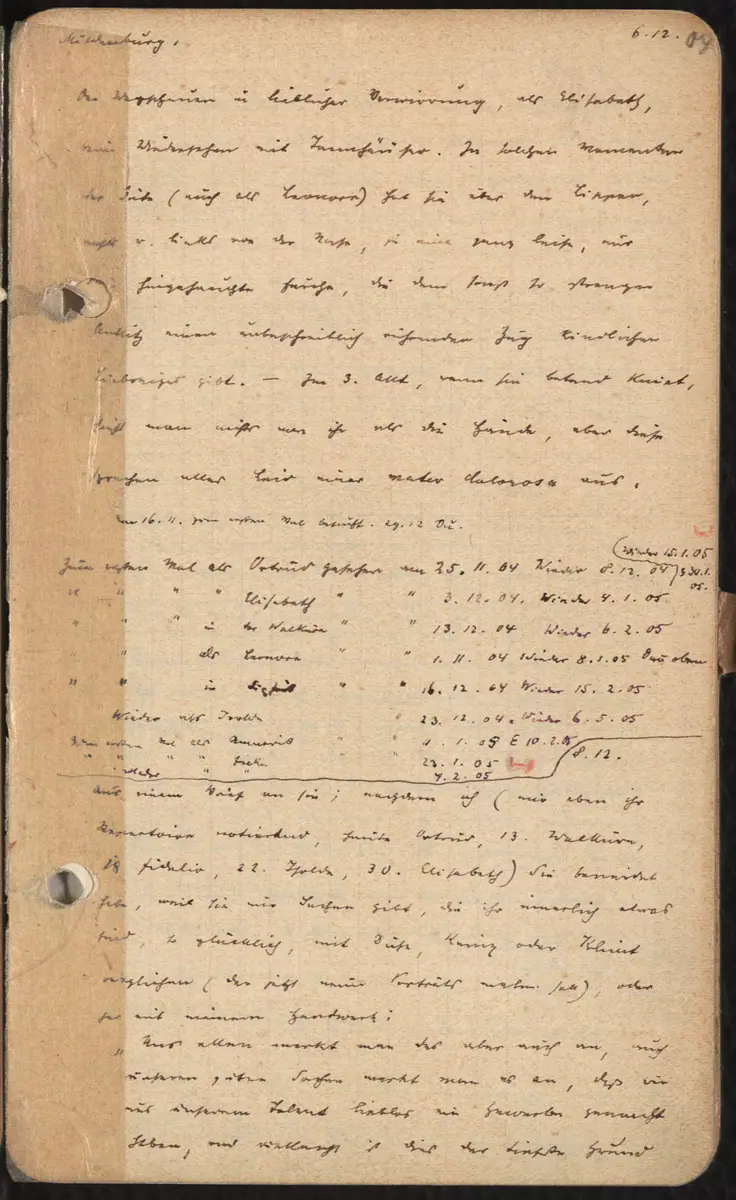 Mildenburg. 6.12.04
Das Wegschauen in lieblicher Verwirrung, als Elisabeth,
beim Wiedersehen mit Tannhäuser. In solchen Momenten
der Güte (auch als Leonore) hat sie über den Lippen,
rechts u. links von der Nase, je eine ganz leise, nur
hingehauchte Furche, die dem sonst so strengen
Antlitz einen unbeschreiblich rührenden Zug kindlichen
Liebreizes gibt. — Im 3. Akt, wenn sie betend kniet,
sieht man nichts von ihr als die Hände, aber diese
sprechen alles Leid einer mater dolorosa aus.
Am 16.11. zum ersten Mal besucht. 29.12 Du.
(Wieder 15.1.05
Zum ersten Mal als Ortrud gesehen am 25.11.04 Wieder 8.12.04 30.1.
05.
" " " " Elisabeth " " 3.12.04. Wieder 4.1.05
" " " in der Walküre " " 13.12.04 Wieder 6.2.05
" " als Leonore " " 1.11.04 Wieder 8.1.05 Dau oben
" " in Sigfrid " " 16.12.04 Wieder 15.2.05
Wieder als Isolde " 23.12.04. Wieder 6.5.05
Zum ersten Mal als Amneris " " 1.05 E 10.2.05
" " " " Fricka " 22.1.05 8.12.
Wieder " " 4.2.05
Aus einem Brief an sie; nachdem ich (mir eben ihr
Repertoire notierend, heute Ortrud, 13. Walküre,
18 Fidelio, 22. Isolde, 30. Elisabeth) sie beneidet
habe, weil sie nur Sachen gibt, die ihr innerlich etwas
sind, so glücklich, mit Duse, Kainz oder Klimt
verglichen (der jetzt neue Porträts malen soll), oder
gar mit meinem Handwerk:
„Uns allen merkt man das aber auch an, auch
unseren guten Sachen merkt man es an, daß wir
aus unserem Talent lieblos ein Gewerbe gemacht
haben, und vielleicht ist dies der tiefste Grund